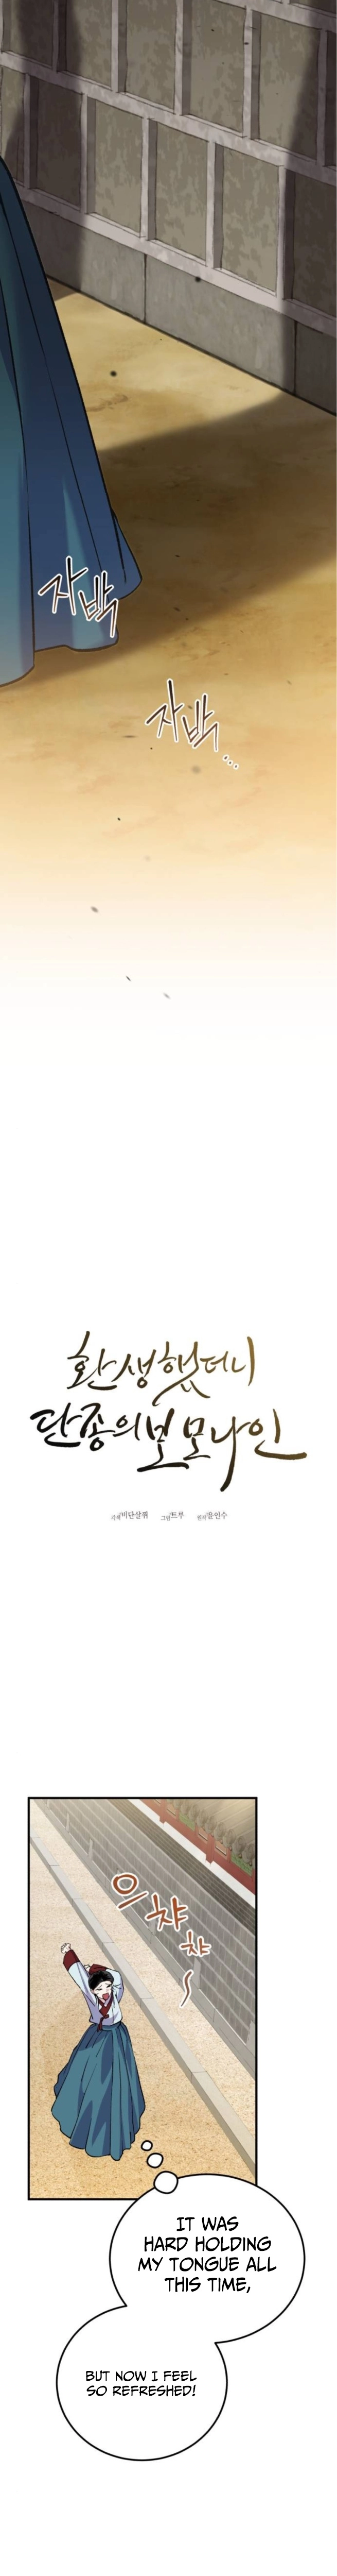 자박
자박...
환생했더니
단종의 보모나인
각색 비단삵취 그림 트루 원작 윤인수
으
챠
챠
~
IT WAS
HARD HOLDING
MY TONGUE ALL
THIS TIME,
BUT NOW I FEEL
SO REFRESHED!